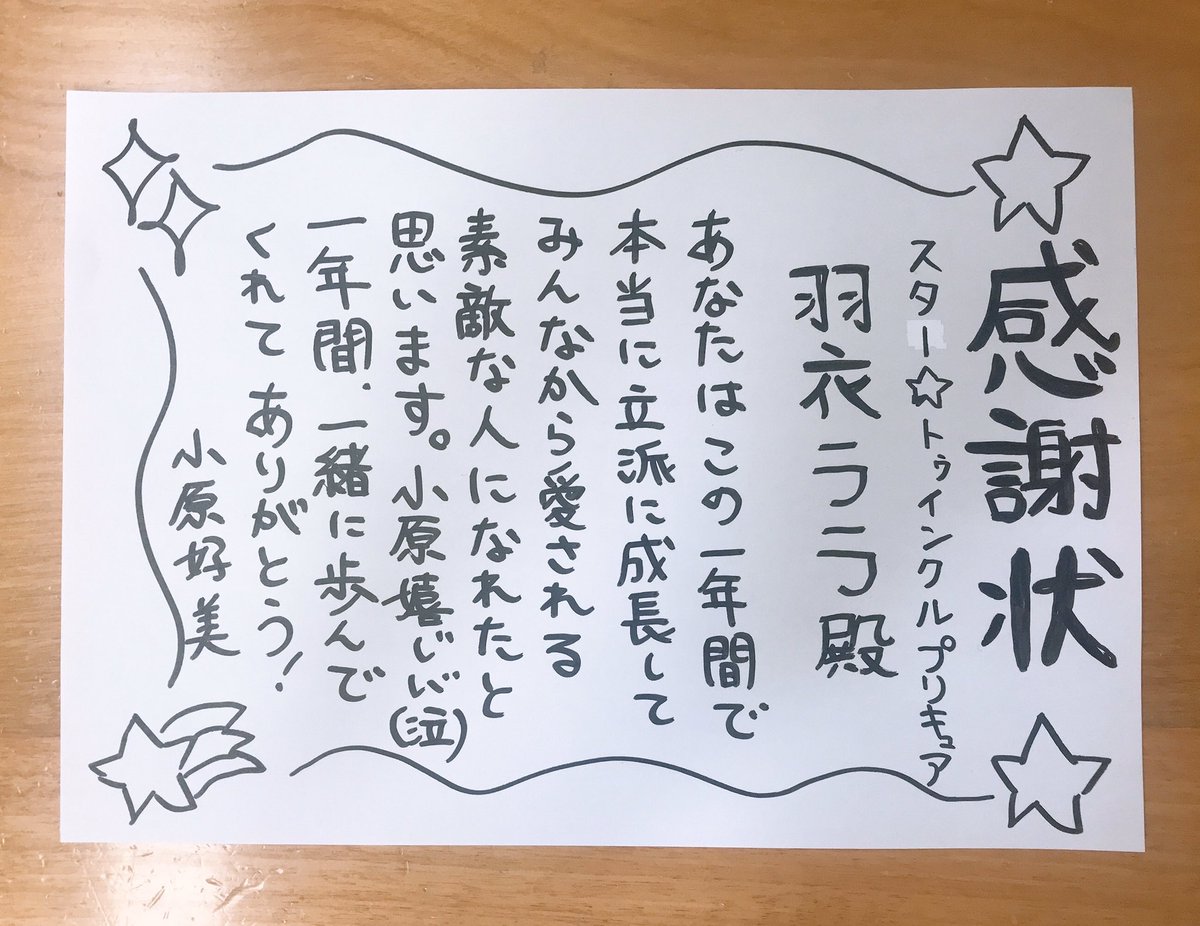 感謝状
スター☆トゥインクルプリキュア
羽衣ララ殿
あなたはこの一年間で
本当に立派に成長して
みんなから愛される
素敵な人になれたと
思います。小原嬉しい(泣)
一年間、一緒に歩んで
くれてありがとう!
小原好美